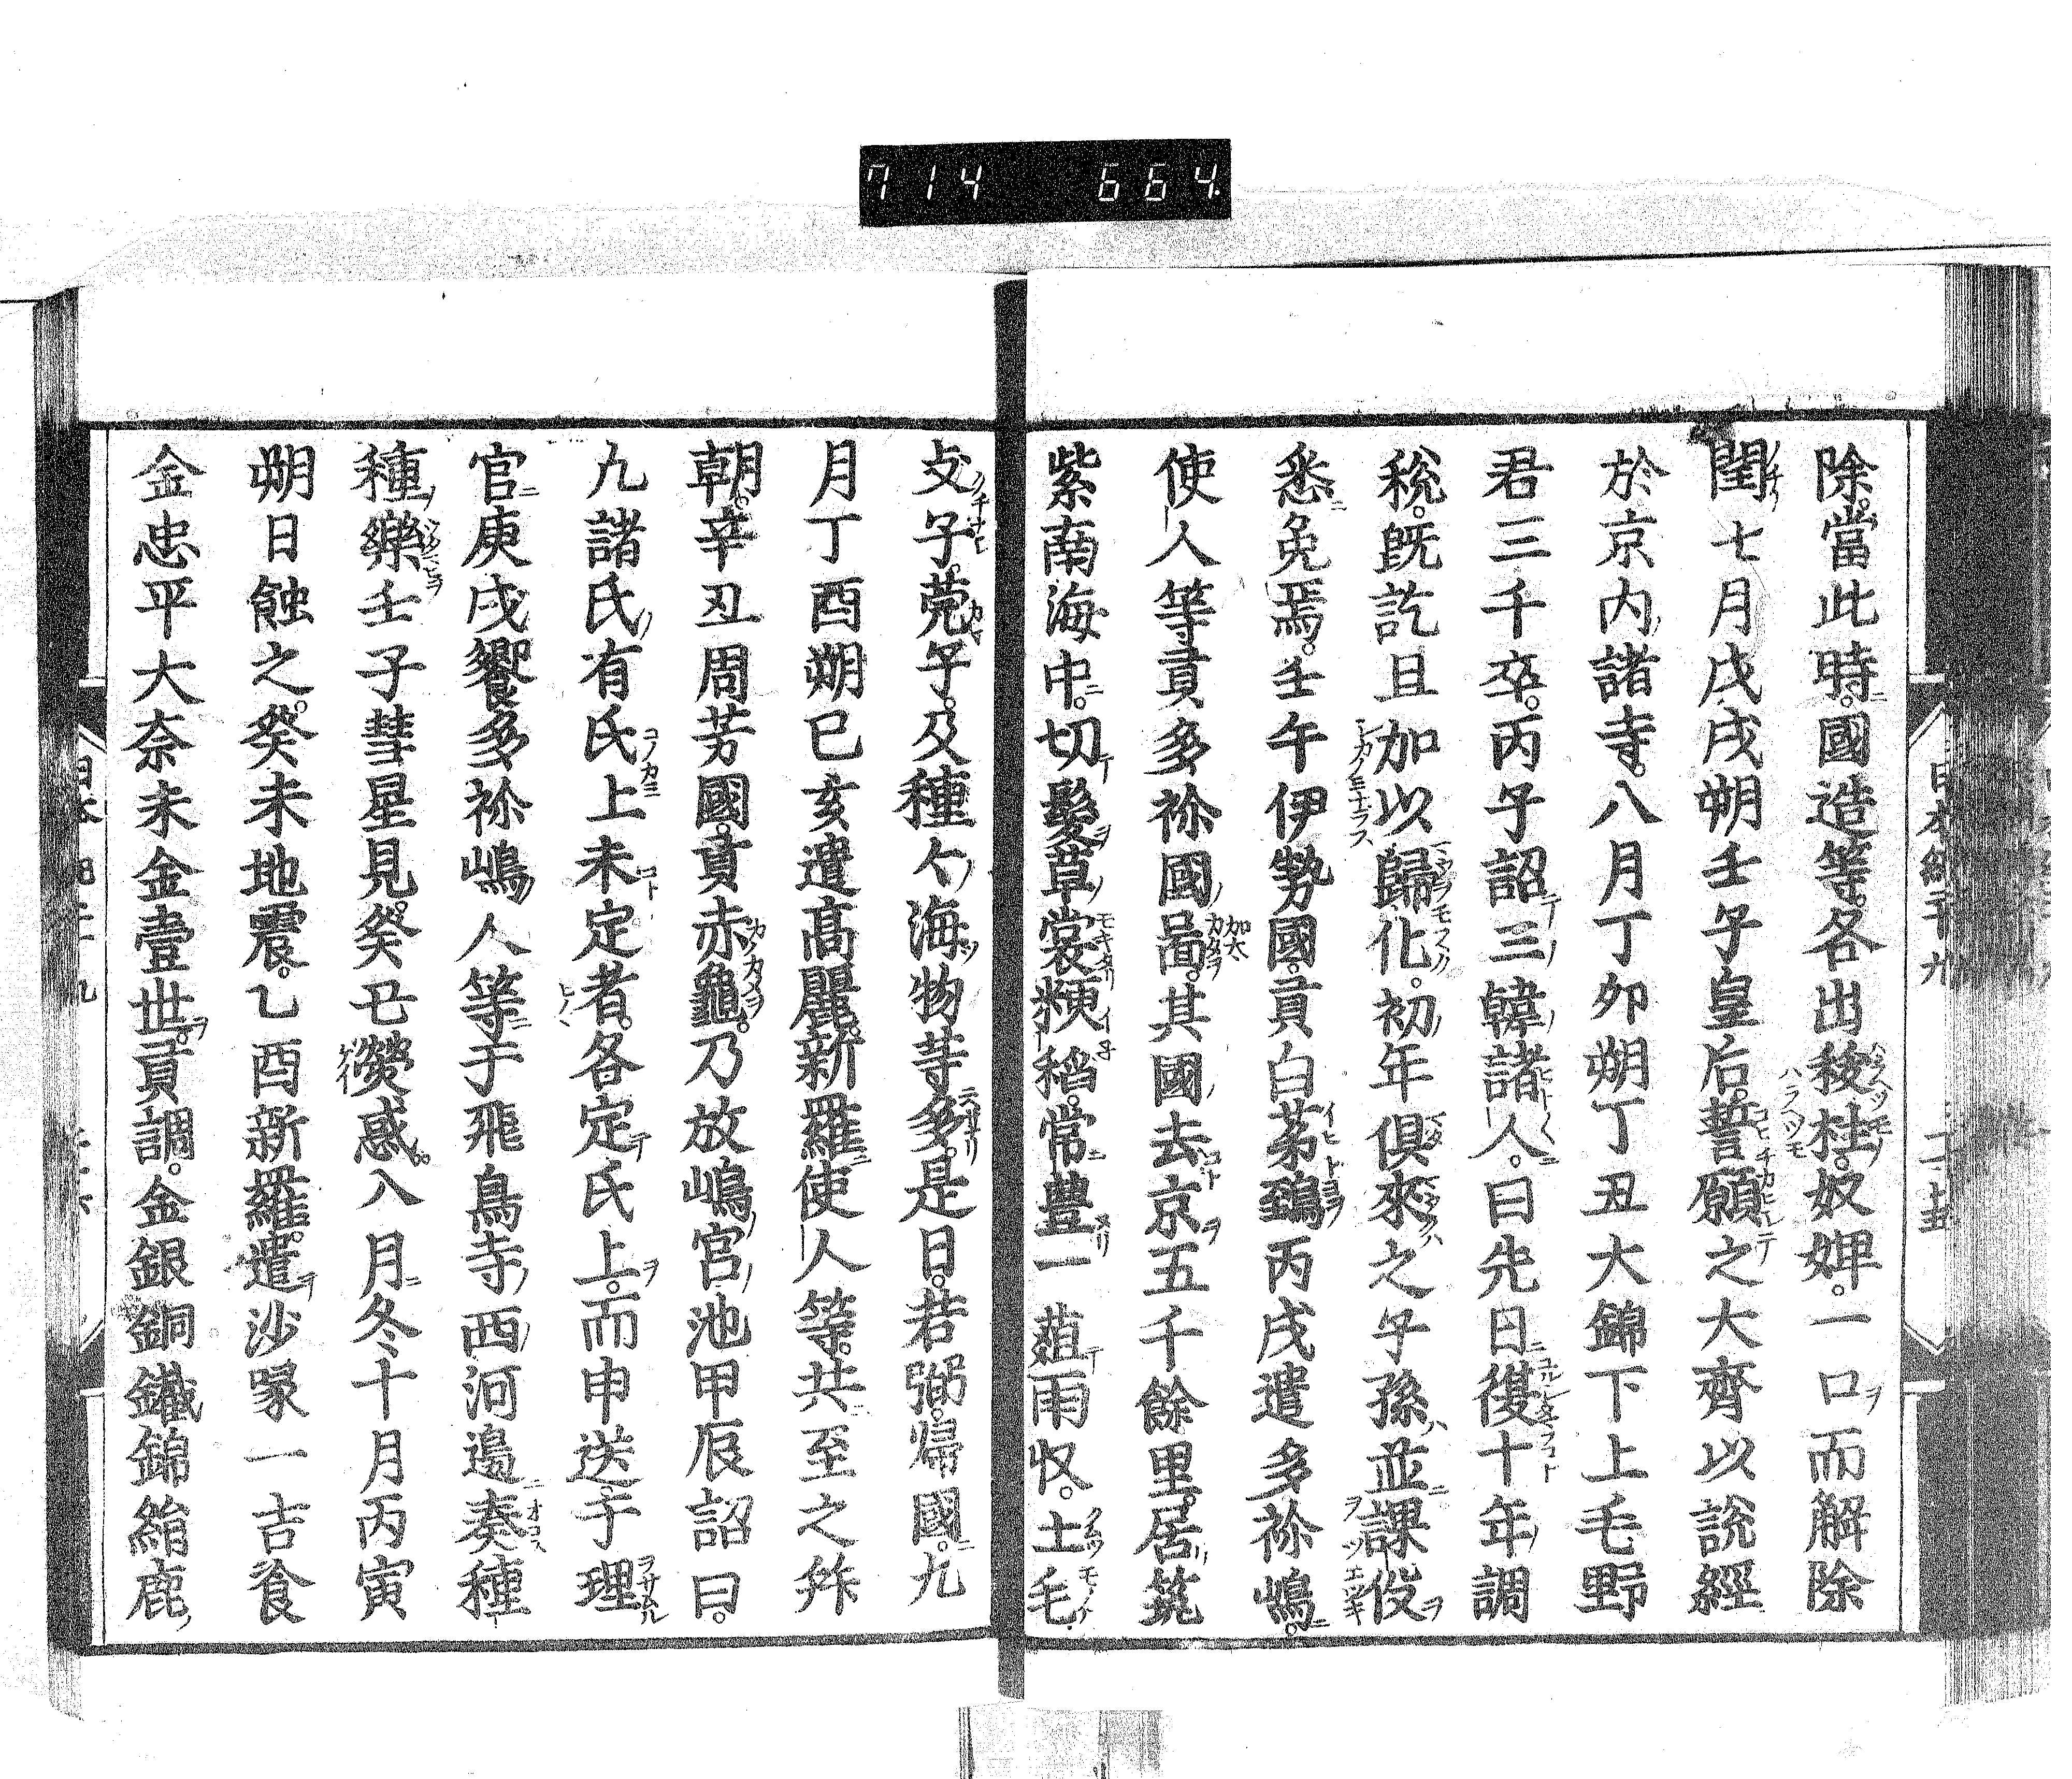 7 1 4 6 6 4
除當此時國造等各出秡柱奴婢一口而解除
閏七月戊戌朔壬子皇后誓願之大齊以說經
於京内諸寺八月丁夘朔丁丑大錦下上毛野
君三千卒丙子詔三韓諸人曰先日復十年調
稅既訖且加以歸化初年俱來之子孫並課伇
悉免焉壬午伊勢國貢白茅鵄丙戌遣多祢嶋
使人等貢多祢國啚其國去京五千餘里居筑
紫南海中切髮草裳粳稻常豊一葅雨収土毛
攴子莞子及種々海物等多是日若弼帰國九
月丁酉朔己亥遣髙麗新羅使人等共至之拜
朝辛丑周芳國貢赤龜乃放嶋宮池甲辰詔曰
九諸氏有氏上未定者各定氏上而申送于理
官庚戌饗多祢嶋人等于飛鳥寺西河邊奏種
種樂壬子彗星見癸丑熒惑入月冬十月丙寅
朔日蝕之癸未地震乙酉新羅遣沙㖨一吉飡
金忠平大奈末金壹世貢調金銀銅鐵錦絹鹿